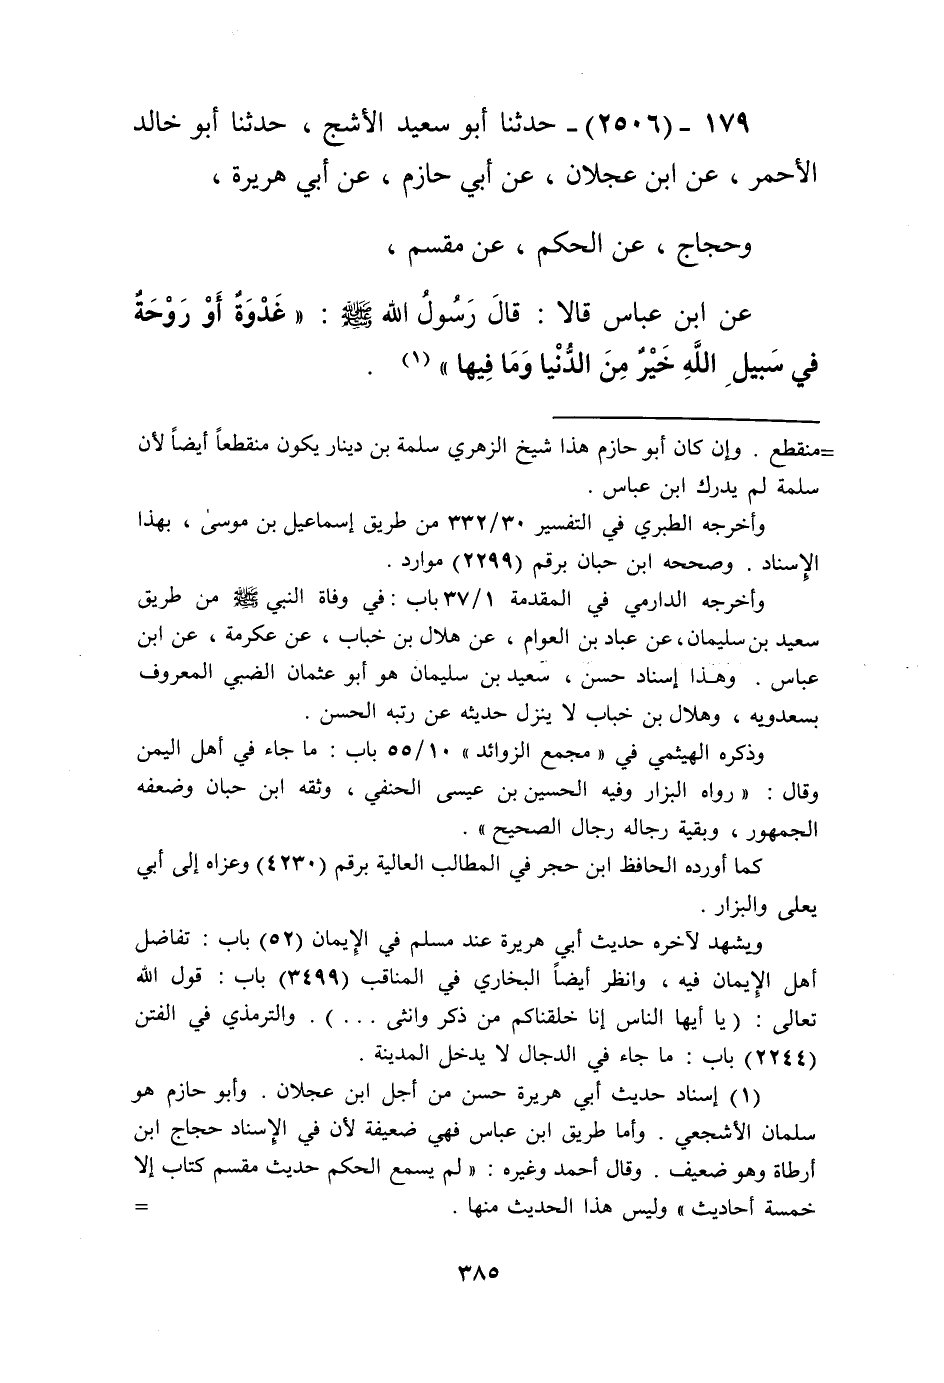 ١٧٩ - (٢٥٠٦) - حدثنا أبو سعيد الأشج ، حدثنا أبو خالد
الأحمر ، عن ابن عجلان ، عن أبي حازم ، عن أبي هريرة ،
وحجاج ، عن الحكم ، عن مقسم ،
عن ابن عباس قالا : قالَ رَسُولُ الله ﷺ : « غَدْوَةٌ أَوْ رَوْحَةٌ
في سَبيلِ اللَّهِ خَيْرٌ مِنَ الدُّنْيا وَمَا فِيها » (١) .
=منقطع . وإن كان أبو حازم هذا شيخ الزهري سلمة بن دينار يكون منقطعاً أيضاً لأن
سلمة لم يدرك ابن عباس .
وأخرجه الطبري في التفسير ٣٣٢/٣٠ من طريق إسماعيل بن موسىٰ ، بهذا
الإسناد . وصححه ابن حبان برقم (٢٢٩٩) موارد .
وأخرجه الدارمي في المقدمة ٣٧/١ باب : في وفاة النبي ﷺ من طريق
سعيد بن سليمان، عن عباد بن العوام ، عن هلال بن خباب ، عن عكرمة ، عن ابن
عباس . وهذا إسناد حسن ، سعيد بن سليمان هو أبو عثمان الضبي المعروف
بسعدويه ، وهلال بن خباب لا ينزل حديثه عن رتبه الحسن .
وذكره الهيثمي في « مجمع الزوائد » ٥٥/١٠ باب : ما جاء في أهل اليمن
وقال : « رواه البزار وفيه الحسين بن عيسى الحنفي ، وثقه ابن حبان وضعفه
الجمهور ، وبقية رجاله رجال الصحيح » .
كما أورده الحافظ ابن حجر في المطالب العالية برقم (٤٢٣٠) وعزاه إلى أبي
يعلى والبزار .
ويشهد لآخره حديث أبي هريرة عند مسلم في الإيمان (٥٢) باب : تفاضل
أهل الإيمان فيه ، وانظر أيضاً البخاري في المناقب (٣٤٩٩) باب : قول الله
تعالى : ( يا أيها الناس إنا خلقناكم من ذكر وانثى . . . ) . والترمذي في الفتن
(٢٢٤٤) باب : ما جاء في الدجال لا يدخل المدينة .
(١) إسناد حديث أبي هريرة حسن من أجل ابن عجلان . وأبو حازم هو
سلمان الأشجعي . وأما طريق ابن عباس فهي ضعيفة لأن في الإسناد حجاج ابن
أرطاة وهو ضعيف . وقال أحمد وغيره : « لم يسمع الحكم حديث مقسم كتاب إلا
خمسة أحاديث » وليس هذا الحديث منها . =
٣٨٥